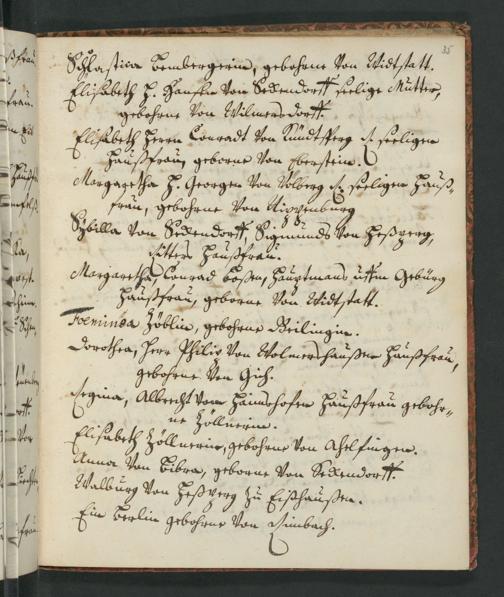 35
Scholastica Bembergerin, gebohrne von Vidtstatt.
Elisabeth H. Hansen von Seckendorff seelige Mutter,
gebohrne von Wilmersdorff.
Elisabeth Herrn Conradt von seeligen
Haußfrau, geborne von Eberstein.
Margaretha H. Georgen von Volberg seeligen Hauß-
frau, gebohrne von Nippenburg
Sybilla von Seckendorff, Sigmunds von Heßperg,
Ritters Haußfrau.
Margaretha, Conrad Boßen, Hauptmans uffm Gebürg
Haußfrau, geborne von Vidtstatt.
Foeminea Zöblin, gebohrne Geilingin.
Dorothea, Herr Philip von Wolmershausen Haußfrau,
gebohrne von Gich.
Regina, Albrecht von Haimehofen Haußfrau gebohr-
ne Zöllnerin.
Elisabeth Zöllnerin, gebohrne von Ahelfingen.
Anna von Bibra, geborne von Seckendorff.
Walburg von Heßperg zu Eißhaußen.
Ein Berlin gebohrne von Rimbach.